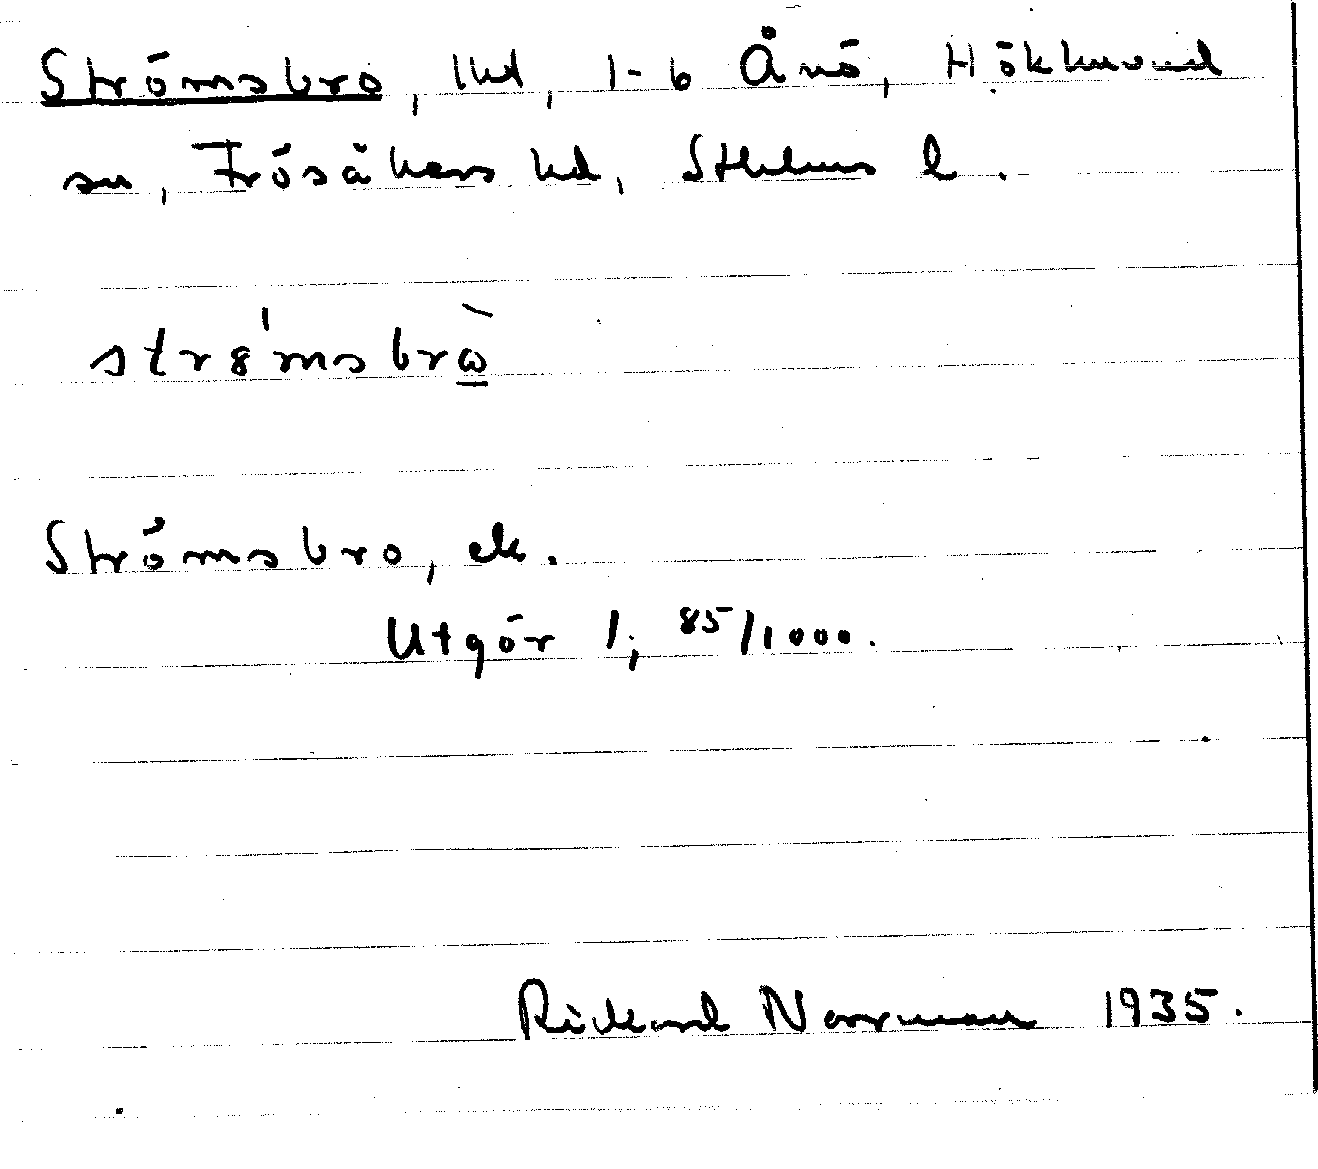 Strömsbro, lhd, 1-6 Ånö, Hökhuvud
sn, Frösåkers hd, Sthlms l.
strǿmsbrὼ
Strömsbro, ek.
Utgör 1; 85/1000.
Rickard Norrman 1935.